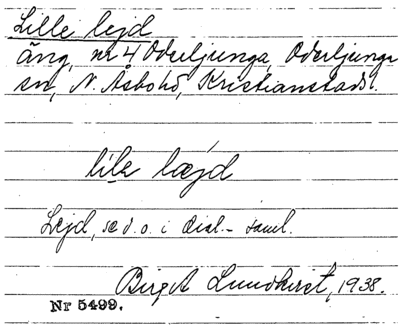 Lille lejd
äng, nr 4 Oderljunga, Oderljunga
sn, N. Åsbo hd, Kristianstads l.
lilɛ læjd
Lejd, se d. o. i dial.- saml.
Birgit Lundkvist, 1938.
Nr 5499.